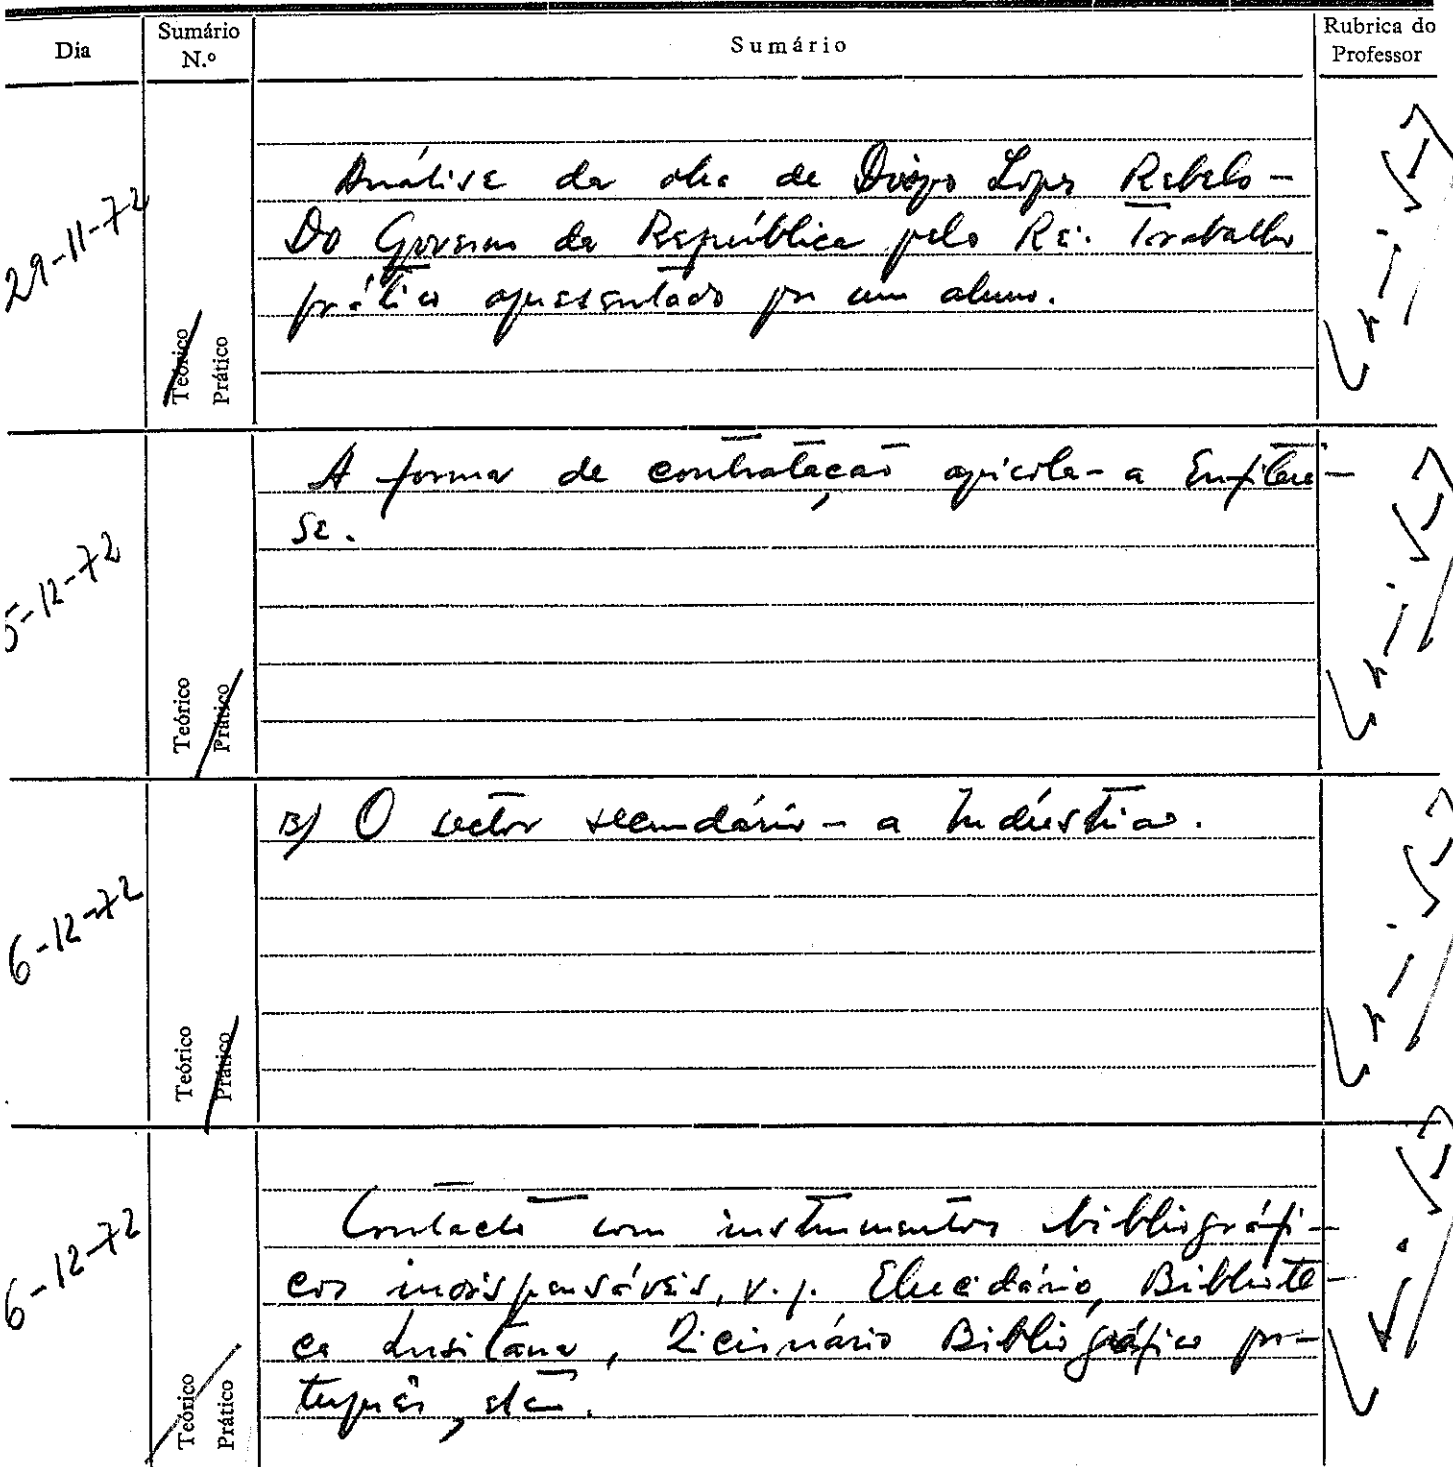 Dia
Sumário
N.º
Sumário
Rubrica do
Professor
29-11-72
Teórico
Prático
Análise da obra de Diogo Lopes Rebelo -
Do Governo da República pelo Rei. Trabalho
prático apresentado por um aluno.
5-12-72
Teórico
Prático
A forma de contratação agrícola - a Enfiteu-
se.
6-12-72
Teórico
Prático
B) O sector secundário - a Indústria.
6-12-72
Teórico
Prático
Contacto com instrumentos bibliográfi-
cos indispensáveis, v.g. Elucidário, Bibliote-
ca Lusitana, Dicionário Bibliográfico por-
tuguês, etc.